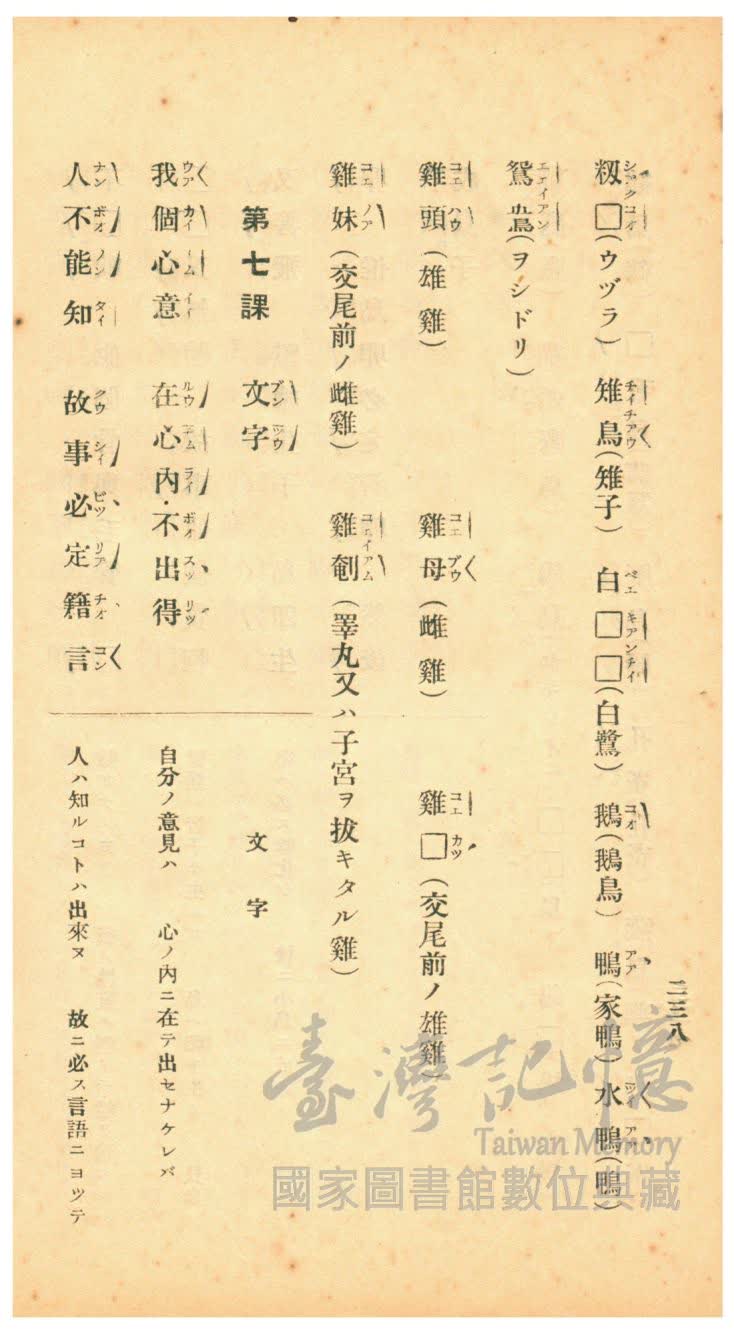 二三八
籾□(ウヅラ) 雉鳥(雉子) 白□□(白鷺) 鵝(鵝鳥) 鴨(家鴨) 水鴨(鴨)
鴛鴦(ヲシドリ)
雞頭(雄雞) 雞母(雌雞) 雞□(交尾前ノ雄雞)
雞妹(交尾前ノ雌雞) 雞劁(睪丸又ハ子宮ヲ拔キタル雞)
第七課 文字
文字
我個心意 在心內·不出得
自分ノ意見ハ 心ノ內ニ在テ出セナケレバ
人不能知 故事必定籍言
人ハ知ルコトハ出來ヌ 故ニ必ス言語ニヨツテ
臺灣記憶
Taiwan Memory
國家圖書館數位典藏